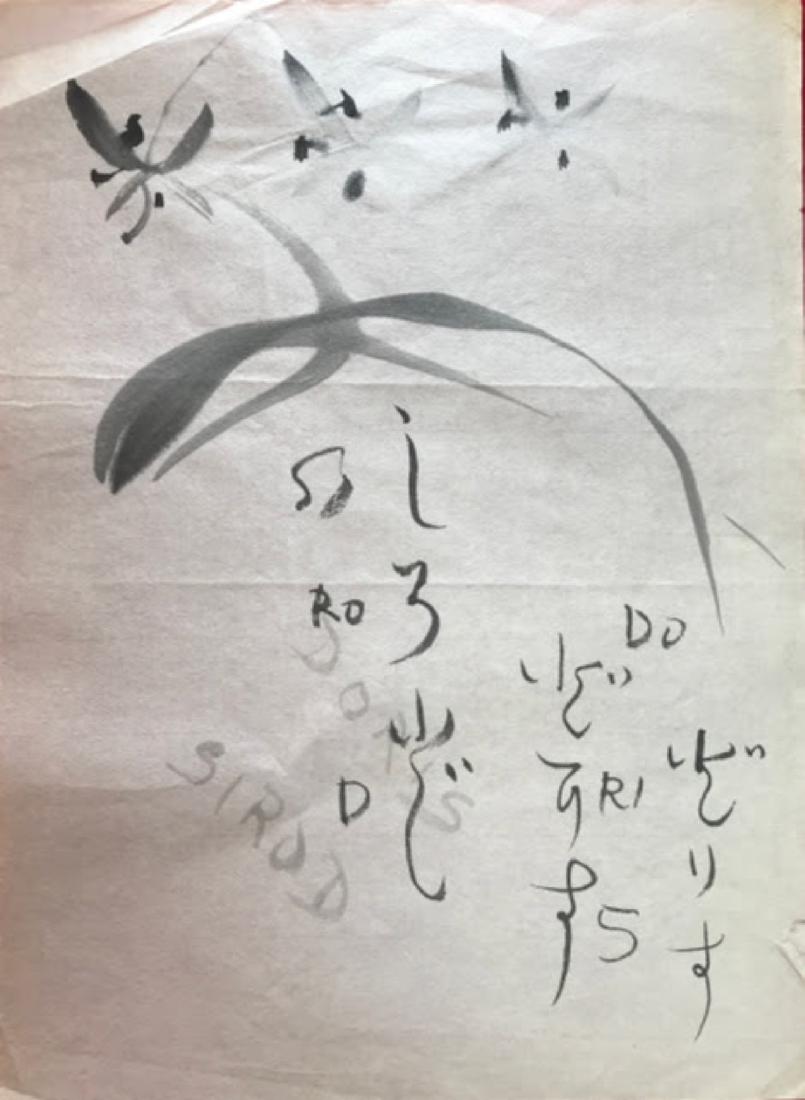 どりす
DO
RI
S
どりす
しろど
RO
D
DORIS
SIROD